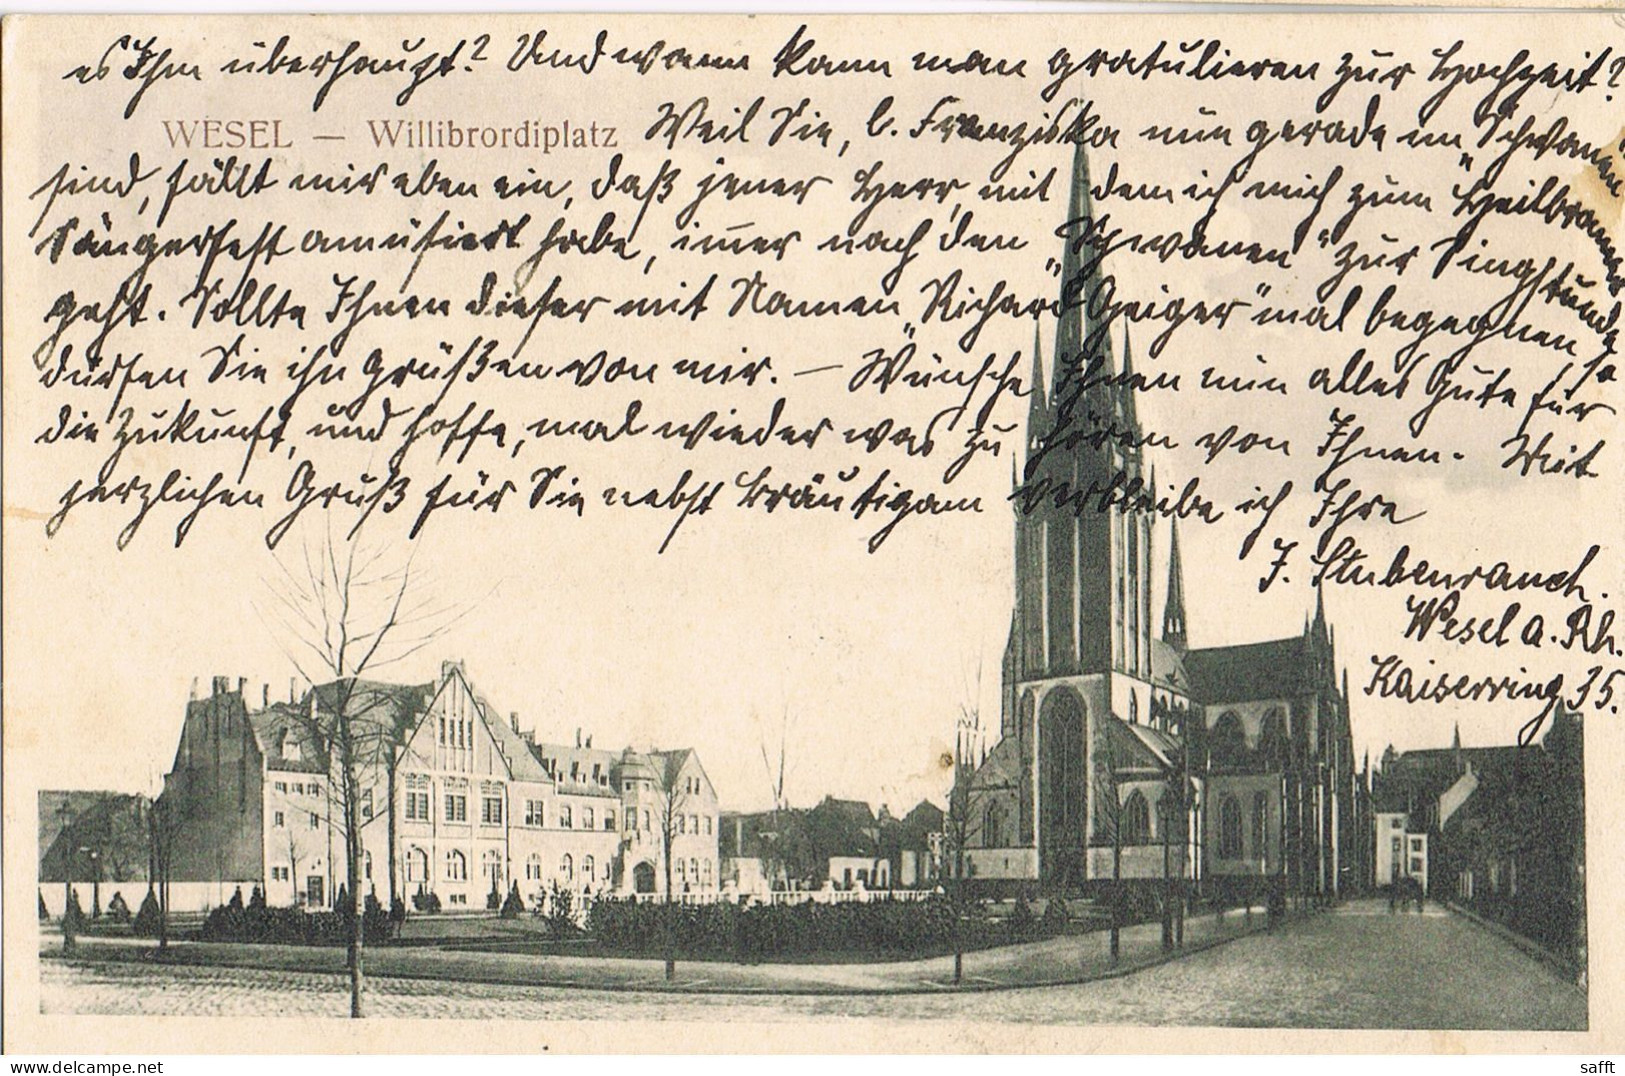 es Ihm überhaupt? Und wann kann man gratulieren zur Hochzeit?
WESEL — Willibrordiplatz
Weil Sie, l. Franziska nun gerade im „Schwanen"
sind, fällt mir eben ein, daß jener Herr, mit dem ich mich zum Heilbronner
Sängerfest amüsiert habe, immer nach den „Schwanen" zur Singstunde
geht. Sollte Ihnen dieser mit Namen „Richard Geiger" mal begegnen, so
dürfen Sie ihn grüßen von mir. — Wünsche Ihnen nun alles Gute für
die Zukunft, und hoffe, mal wieder was zu hören von Ihnen. Mit
herzlichen Gruß für Sie nebst Bräutigam verbleibe ich Ihre
J. Stubenrauch.
Wesel a. Rh.
Kaiserring 35.
safft